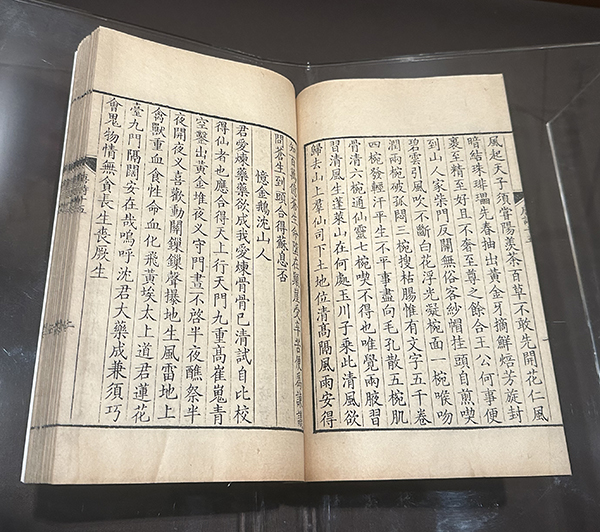 風起天子須嘗陽羨茶百草不敢先開花仁風
暗結珠琲瓃先春抽出黃金牙摘鮮焙芳旋封
裹至精至好且不奢至尊之餘合王公何事便
到山人家柴門反關無俗客紗帽挂頭自煎喫
碧雲引風吹不斷白花浮光凝椀面一椀喉吻
潤兩椀破孤悶三椀搜枯腸惟有文字五千卷
四椀發輕汗平生不平事盡向毛孔散五椀肌
骨清六椀通仙靈七椀喫不得也唯覺兩腋習
習清風生蓬萊山在何處玉川子乘此清風欲
歸去山上群仙司下土地位清高隔風雨安得
知百萬億蒼生命墮在巔崖受辛苦便為諫議
問蒼生到頭合得蘇息否
憶金鵝沈山人
君愛煉藥藥欲成我愛煉骨骨已清試自比校
得仙者也應合得天上行天門九重高崔嵬青
空鑿出黃金堆夜叉守門晝不啓半夜醮祭半
夜開夜叉喜歡動關鏁鏁聲撼地生風雷地上
禽獸重血食性命血化飛黃埃太上道君蓮花
臺九門隔闊安在哉嗚呼沈君大藥成兼須巧
會鬼物情無貪長生喪厥生